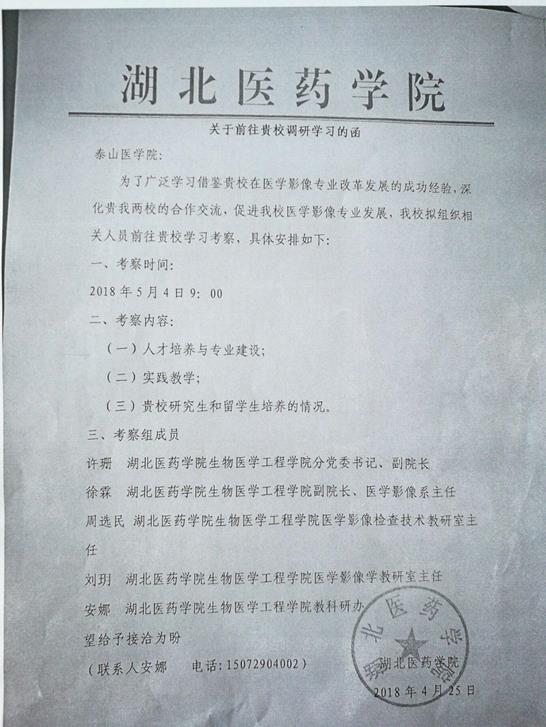 湖北医药学院
关于前往贵校调研学习的函
泰山医学院:
为了广泛学习借鉴贵校在医学影像专业改革发展的成功经验,深
化贵我两校的合作交流，促进我校医学影像专业发展，我校拟组织相
关人员前往贵校学习考察，具体安排如下:
一、考察时间:
2018年5月4日9：00
二、考察内容:
（一）人才培养与专业建设;
（二）实践教学;
（三）贵校研究生和留学生培养的情况。
三、考察组成员
许珊 湖北医药学院生物医学工程学院分党委书记、副院长
徐霖 湖北医药学院生物医学工程学院副院长、医学影像系主任
周选民 湖北医药学院生物医学工程学院医学影像检查技术教研室主
任
刘玥 湖北医药学院生物医学工程学院医学影像学教研室主任
安娜 湖北医药学院生物医学工程学院教科研办
望给予接洽为盼
（联系人安娜 电话:15072904002）
湖北医药学院
湖北医药学院
2018年4月25日